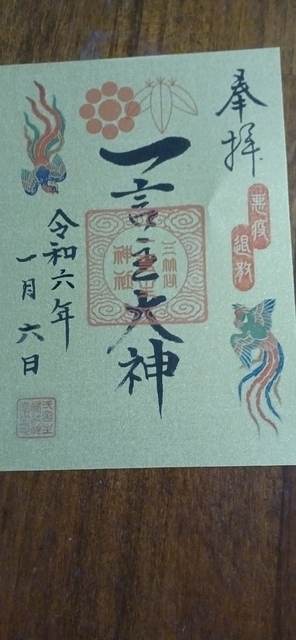 奉拝
悪疫
退散
一言主大神
令和六年
一月六日